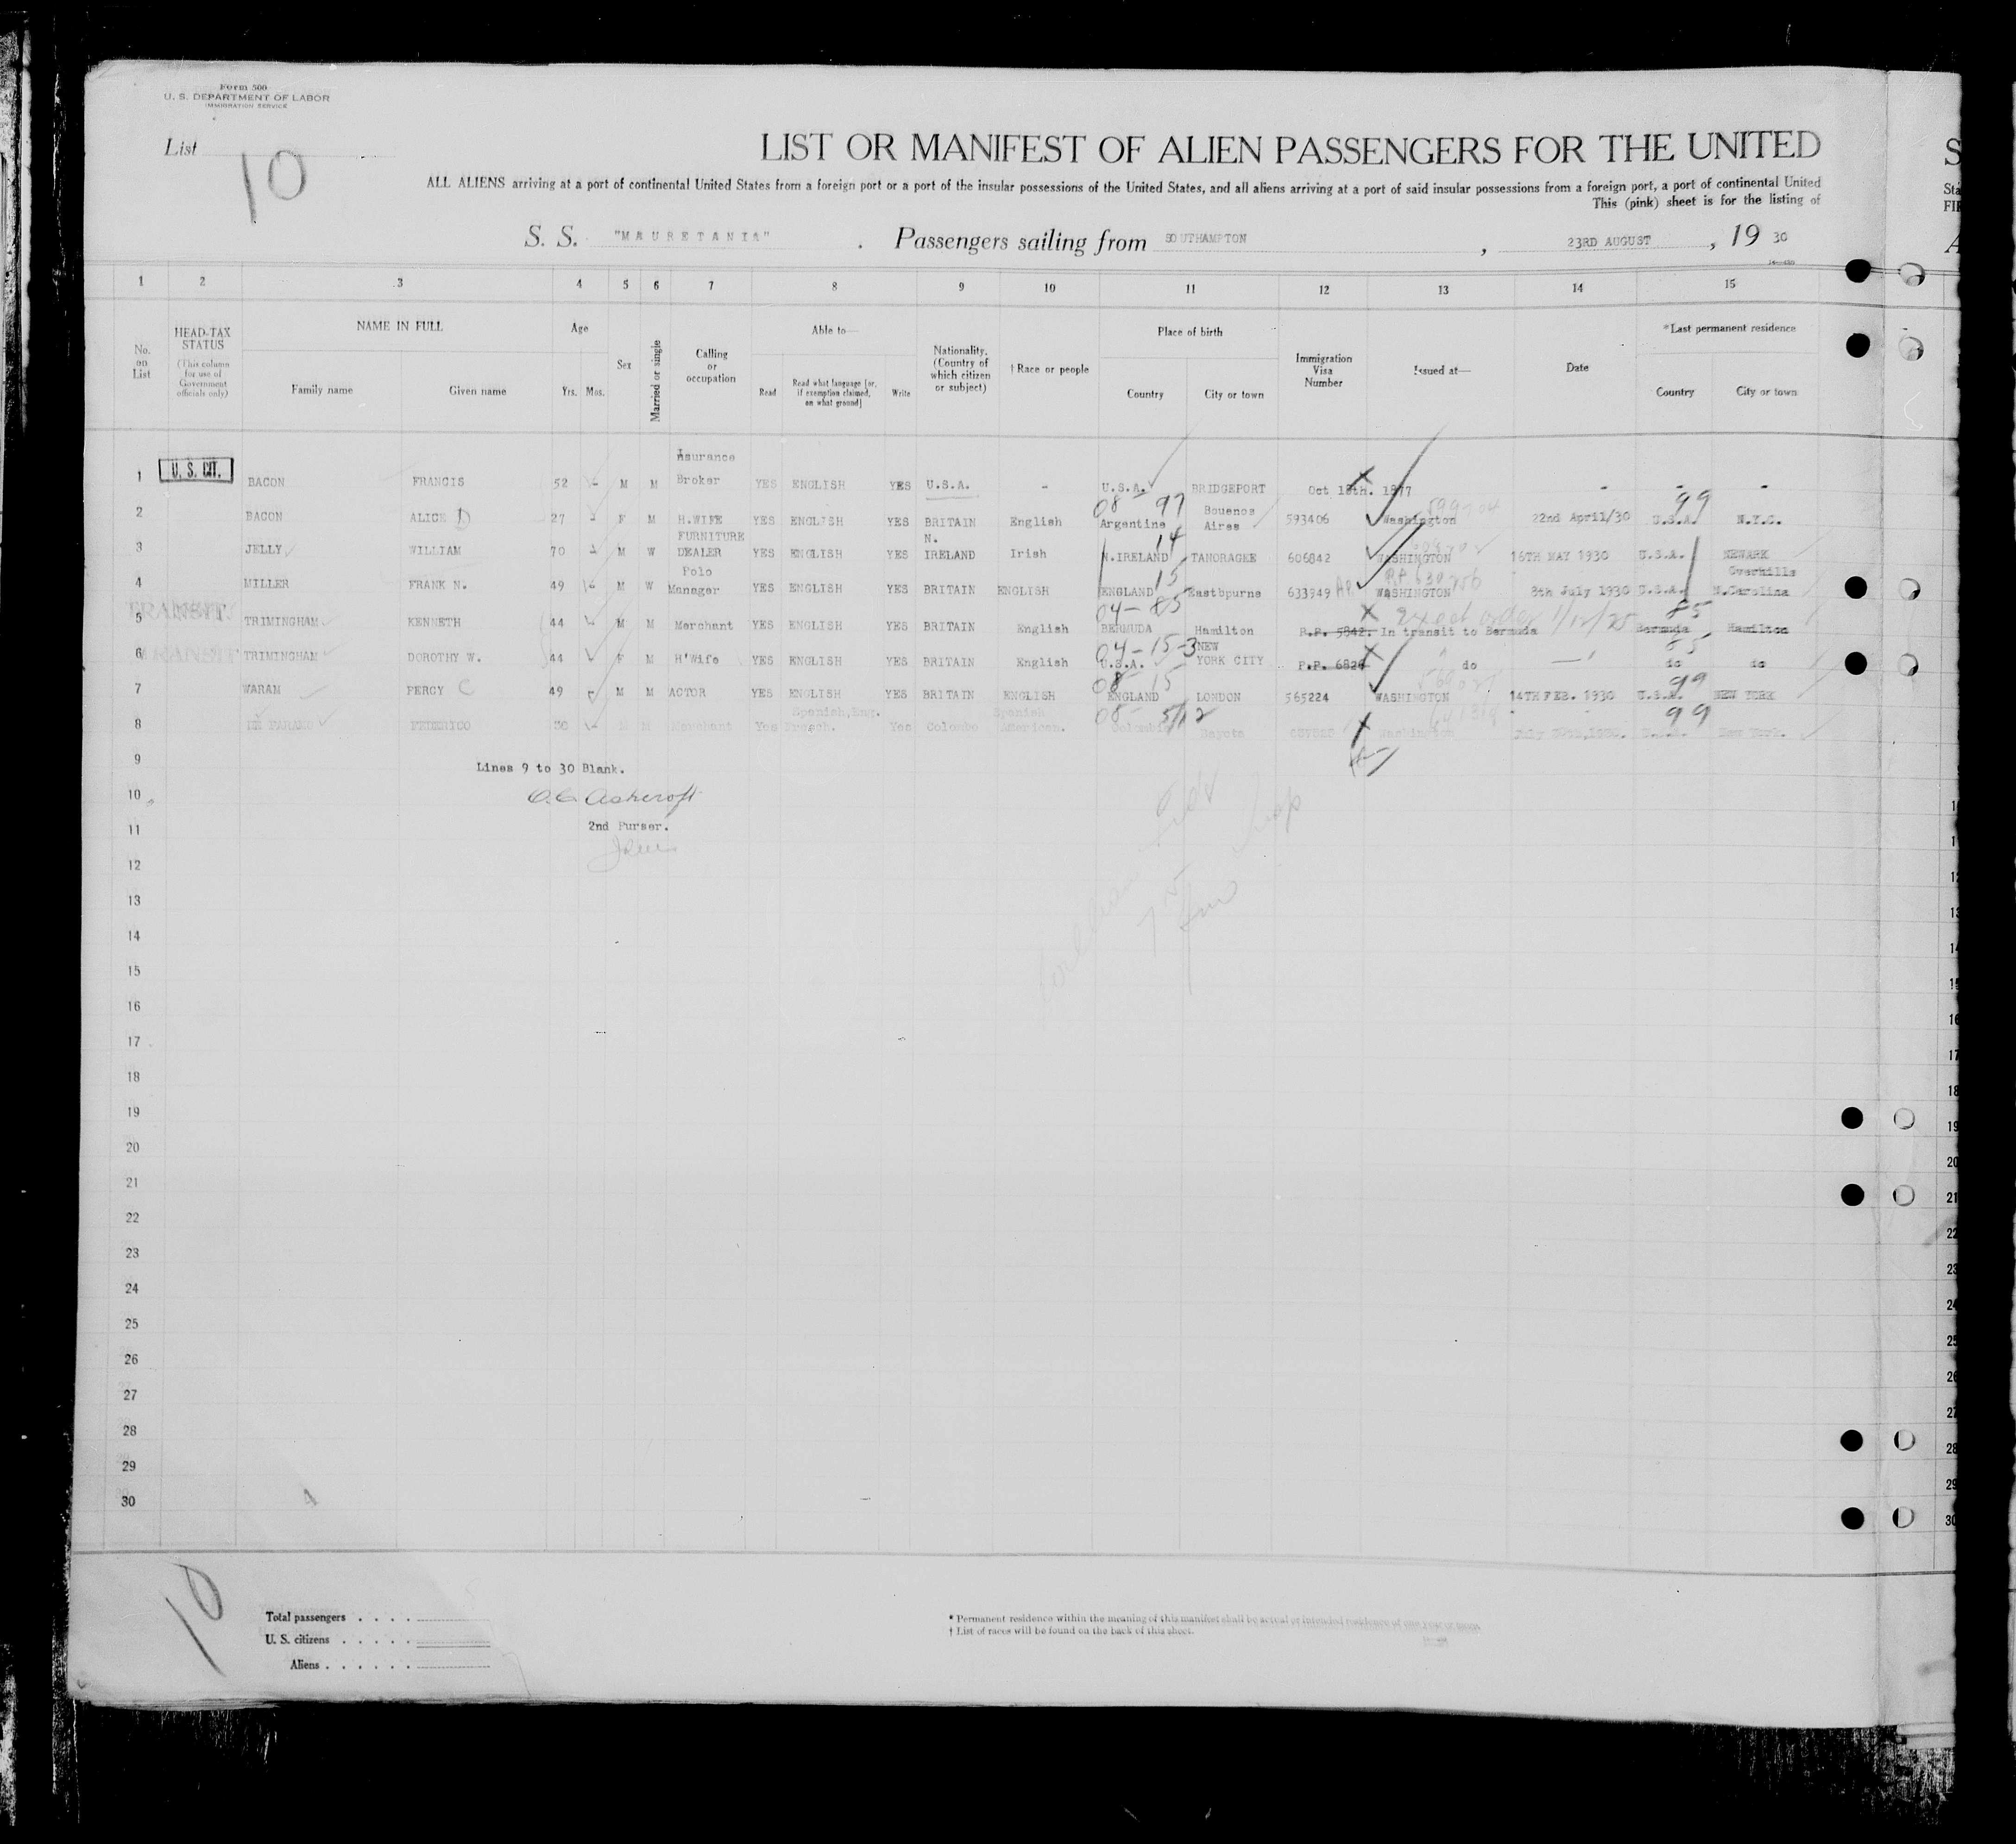 Form 500
U. S. DEPARTMENT OF LABOR
IMMIGRATION SERVICE
List 10
LIST OR MANIFEST OF ALIEN PASSENGERS FOR THE UNITED
ALL ALIENS arriving at a port of continental United States from a foreign port or a port of the insular possessions of the United States, and all aliens arriving at a port of said insular possessions from a foreign port, a port of continental United
This (pink) sheet is for the listing of
S. S. "MAURETANIA" . Passengers sailing from SOUTHAMPTON , 23RD AUGUST , 19 30
1 2 3 4 5 6 7 8 9 10 11 12 13 14 15
No. on List
HEAD-TAX STATUS (This column for use of Government officials only)
NAME IN FULL
Family name Given name
Age
Yrs. Mos.
Sex
Married or single
Calling or occupation
Able to—
Read Read what language [or, if exemption claimed, on what ground] Write
Nationality. (Country of which citizen or subject)
† Race or people
Place of birth
Country City or town
Immigration Visa Number
Issued at—
Date
*Last permanent residence
Country City or town
1 U. S. CIT. BACON FRANCIS 52 M M Insurance Broker YES ENGLISH YES U.S.A. - U.S.A. BRIDGEPORT Oct 18th. 1877 - - -
08 97 99
2 BACON ALICE D 27 F M H.WIFE YES ENGLISH YES BRITAIN English Argentine Bouenos Aires 593406 Washington 22nd April/30 U.S.A. N.Y.C.
14
3 JELLY WILLIAM 70 M W FURNITURE DEALER YES ENGLISH YES N. IRELAND Irish N.IRELAND TANORAGEE 606842 WASHINGTON 16TH MAY 1930 U.S.A. NEWARK
15
4 MILLER FRANK N. 49 M W Polo Manager YES ENGLISH YES BRITAIN ENGLISH ENGLAND Eastbpurne 633949 WASHINGTON 8th July 1930 U.S.A. Overhills N.Carolina
TRANSIT
04-85 85
5 TRIMINGHAM KENNETH 44 M M Merchant YES ENGLISH YES BRITAIN English BERMUDA Hamilton P.P. 5842. In transit to Bermuda Bermuda Hamilton
TRANSIT
04-15-3 85
6 TRIMINGHAM DOROTHY W. 44 F M H'Wife YES ENGLISH YES BRITAIN English U.S.A. NEW YORK CITY P.P. do do do
08-15 99
7 WARAM PERCY C 49 M M ACTOR YES ENGLISH YES BRITAIN ENGLISH ENGLAND LONDON 565224 WASHINGTON 14TH FEB. 1930 U.S.A. NEW YORK
08- 99
8 FEDERICO 30 M M Merchant Yes Spanish, Eng. French. Yes Colombo Spanish American. Colombia Bogota Washington New York.
9
Lines 9 to 30 Blank.
10
O.C. Ashcroft
11
2nd Purser.
12
13
14
15
16
17
18
19
20
21
22
23
24
25
26
27
28
29
30
10
Total passengers . . . .
U. S. citizens . . . . .
Aliens . . . . . .
* Permanent residence within the meaning of this manifest shall be actual or intended residence of one year or more.
† List of races will be found on the back of this sheet.